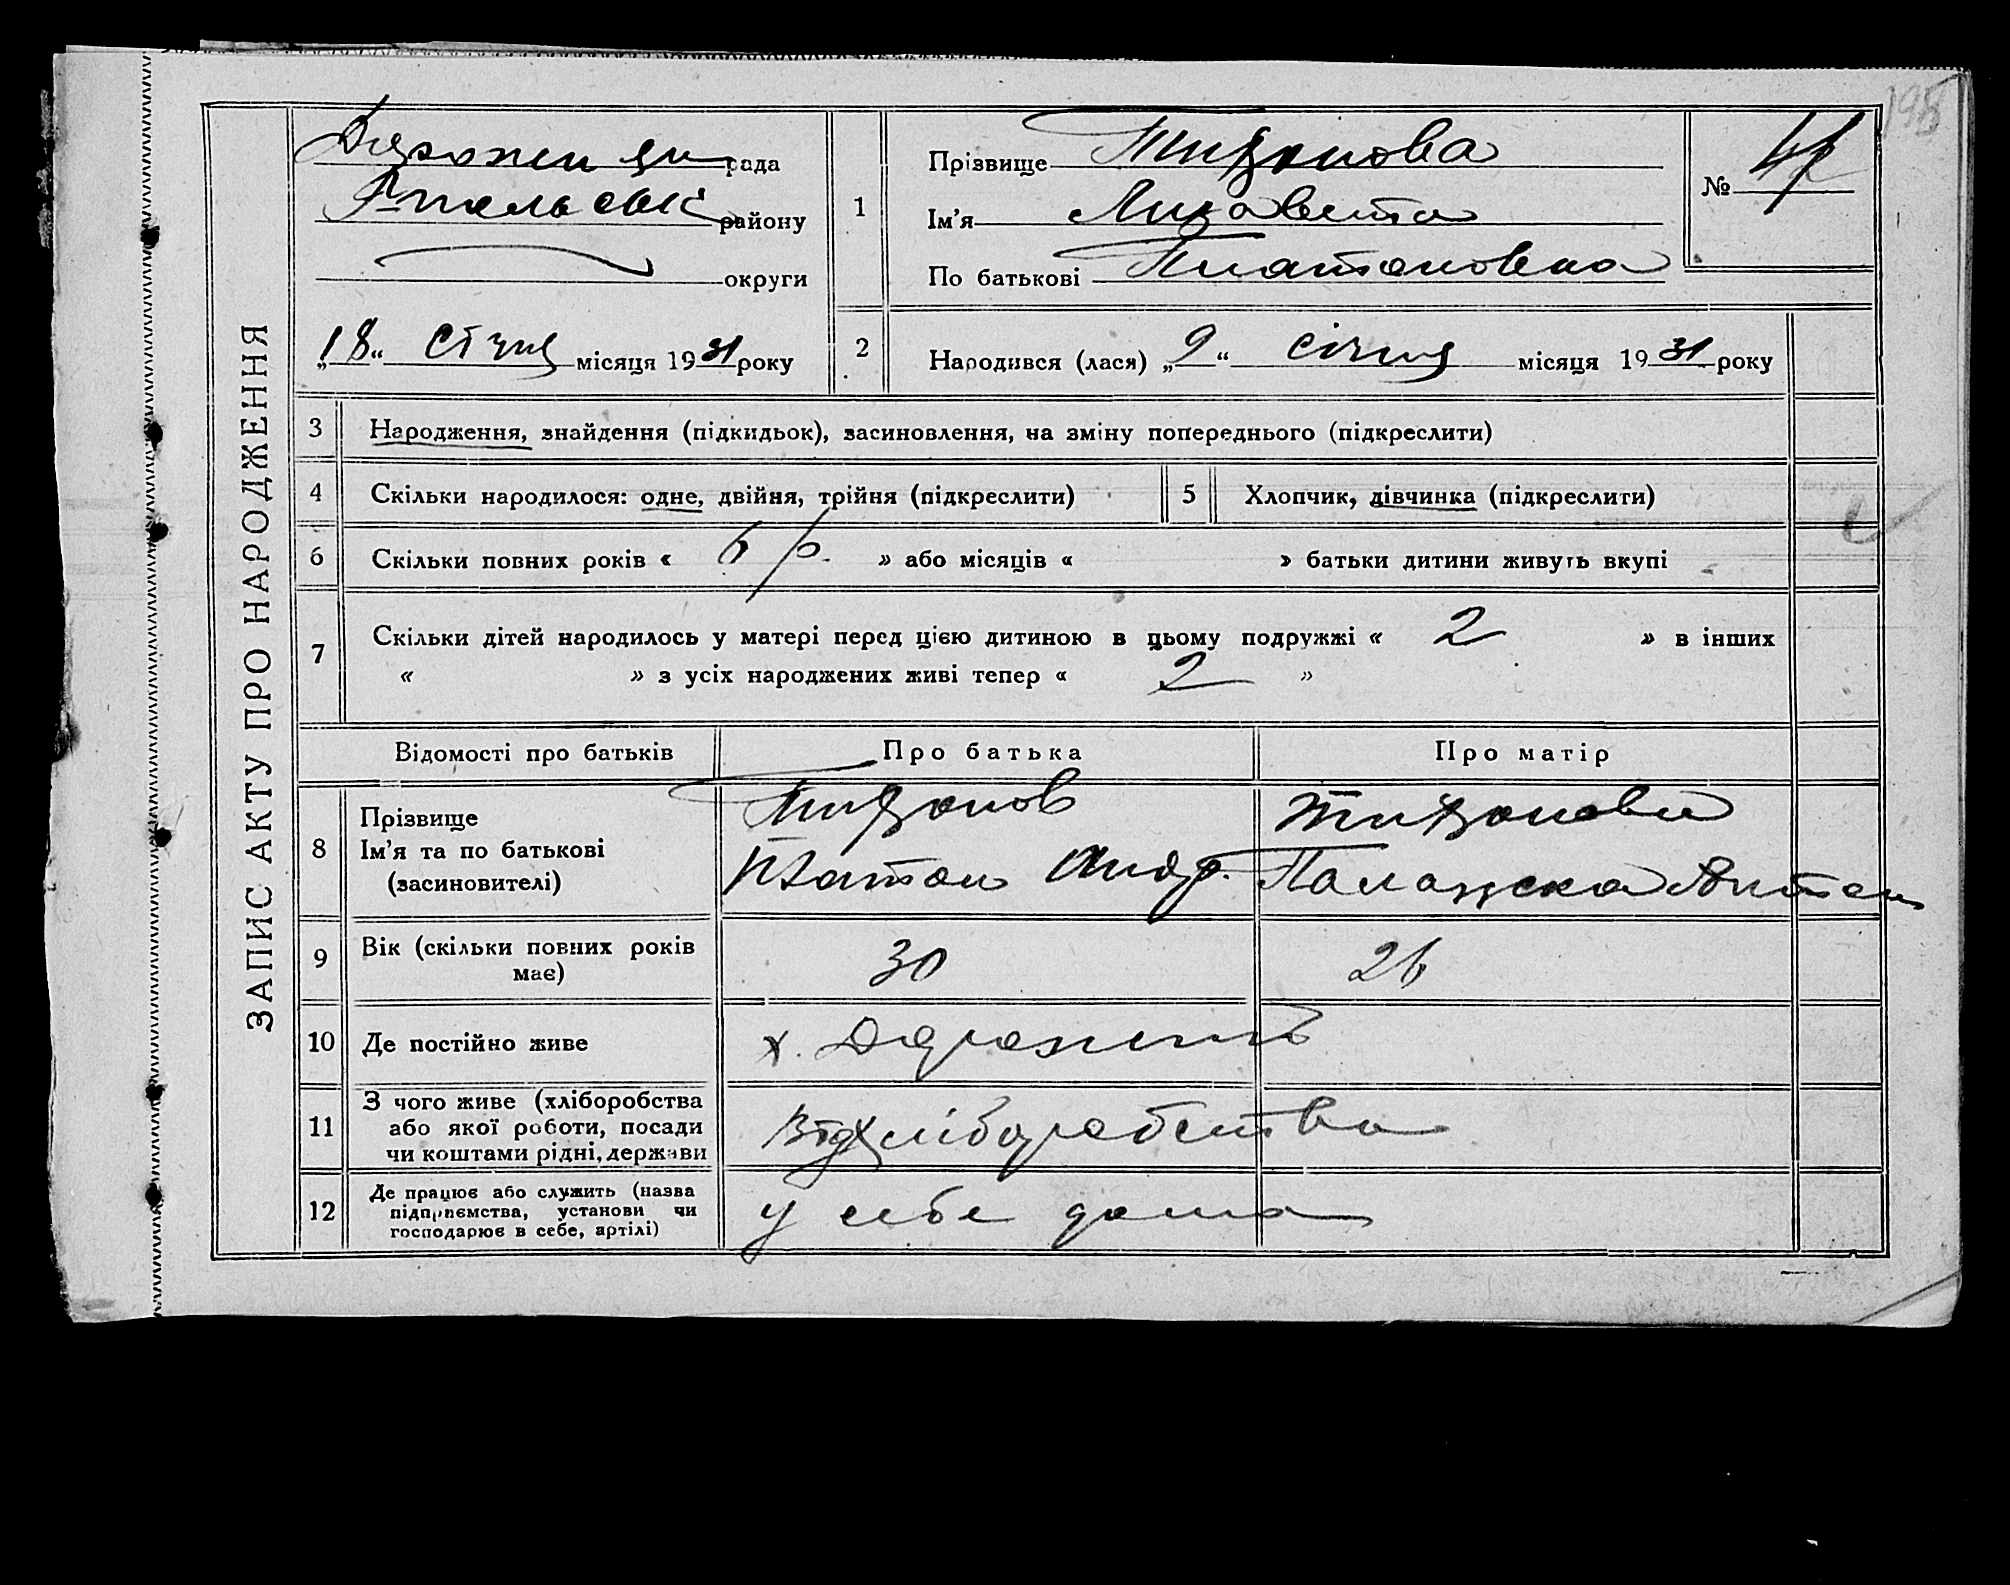 ЗАПИС АКТУ ПРО НАРОДЖЕННЯ
198
рада
району
округи
„18“ січня місяця 1931 року
1
Прізвище Тихонова
Ім'я Лизавета
По батькові Платоновна
№ 47
2
Народився (лася) „9“ січня місяця 1931 року
3 Народження, знайдення (підкидьок), засиновлення, на зміну попереднього (підкреслити)
4 Скільки народилося: одне, двійня, трійня (підкреслити)
5 Хлопчик, дівчинка (підкреслити)
6 Скільки повних років « 6 р. » або місяців « » батьки дитини живуть вкупі
7 Скільки дітей народилось у матері перед цією дитиною в цьому подружжі « 2 » в інших
« » з усіх народжених живі тепер « 2 »
Відомості про батьків Про батька Про матір
8 Прізвище
Ім'я та по батькові
(засиновителі)
Тихонов
Платон Андр.
Тихонова
Палажка Антон
9 Вік (скільки повних років
має)
30 26
10 Де постійно живе х.
11 З чого живе (хліборобства
або якої роботи, посади
чи коштами рідні, держави
Від хліборобства
12 Де працює або служить (назва
підприємства, установи чи
господарює в себе, артілі)
у себе дома